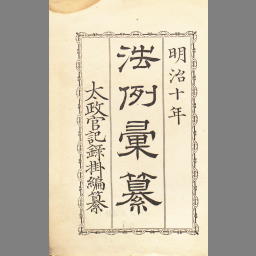 明治十年
法例彙纂
太政官記錄掛編纂